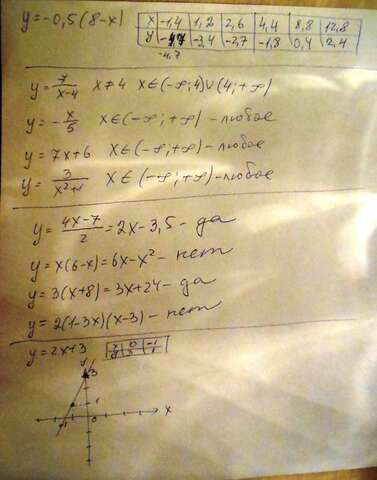 y=-0,5(8-x)
x -1,4 1,2 2,6 4,4 8,8 12,8
y -4,7 -3,4 -2,7 -1,8 0,4 2,4
-4,7
y=7/(x-4) x≠4 x∈(-∞;4)∪(4;+∞)
y=-x/5 x∈(-∞;+∞) - любое
y=7x+6 x∈(-∞;+∞) - любое
y=3/(x²+1) x∈(-∞;+∞) - любое
y=(4x-7)/2=2x-3,5 - да
y=x(6-x)=6x-x² - нет
y=3(x+8)=3x+24 - да
y=2(1-3x)(x-3) - нет
y=2x+3
x 0 -1
y 3 1
y
3
1
-1 0 x